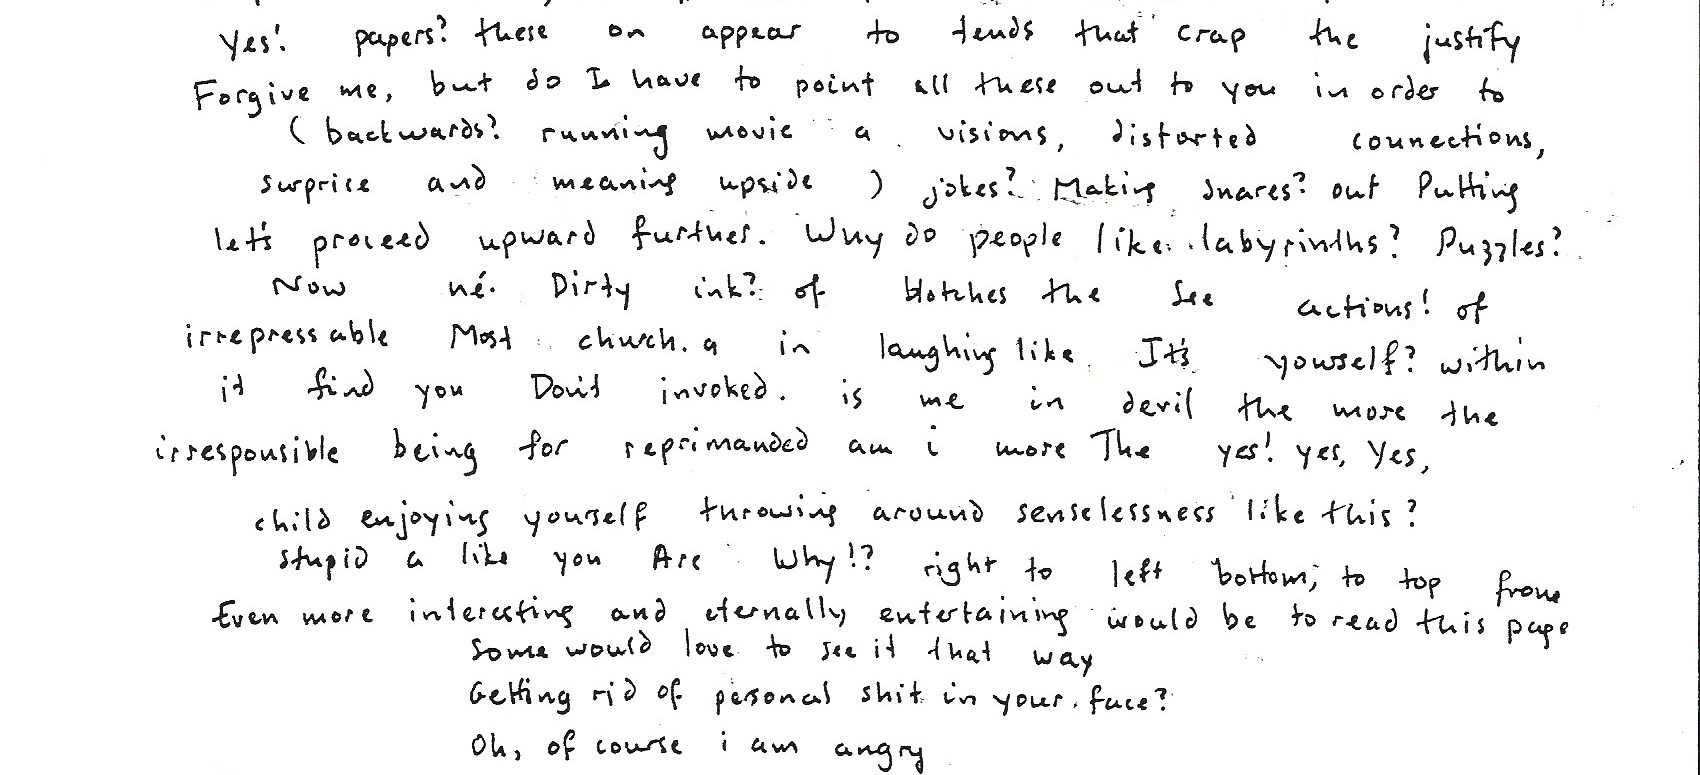 Yes! papers? these on appear to tends that crap the justify
Forgive me, but do I have to point all these out to you in order to
( backwards? running movie a visions, distorted connections,
surprise and meaning upside ) jokes? Making snares? out Putting
let's proceed upward further. Why do people like labyrinths? Puzzles?
Now né. Dirty ink? of blotches the See actions! of
irrepressable Most church. a in laughing like It's yourself? within
it find you Don't invoked. is me in devil the more the
irresponsible being for reprimanded am i more The yes! yes, Yes,
child enjoying yourself throwing around senselessness like this?
stupid a like you Are Why!? right to left bottom, to top from
Even more interesting and eternally entertaining would be to read this page
Some would love to see it that way
Getting rid of personal shit in your face?
Oh, of course i am angry